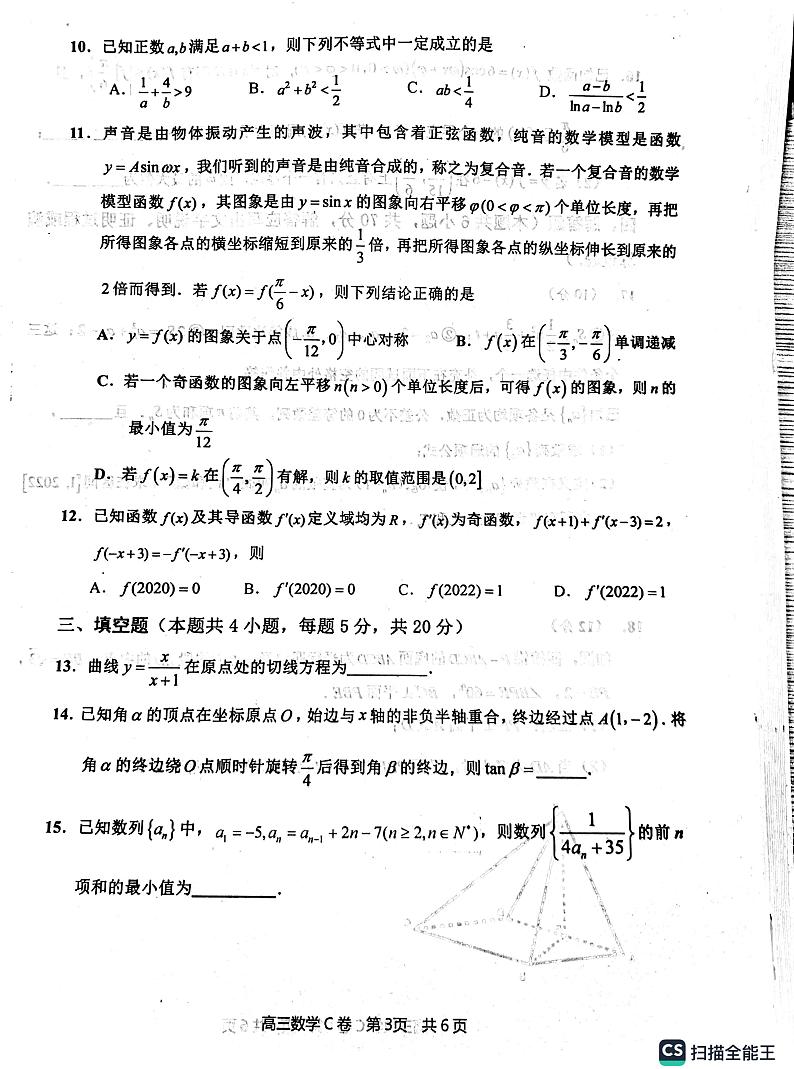 10．已知正数a,b满足a+b<1，则下列不等式中一定成立的是
A．1/a+4/b>9 B．a²+b²<1/2 C．ab<1/4 D．(a-b)/(lna-lnb)<1/2
11．声音是由物体振动产生的声波，其中包含着正弦函数，纯音的数学模型是函数
y=Asinωx，我们听到的声音是由纯音合成的，称之为复合音．若一个复合音的数学
模型函数f(x)，其图象是由y=sinx的图象向右平移φ(0<φ<π)个单位长度，再把
所得图象各点的横坐标缩短到原来的1/3倍，再把所得图象各点的纵坐标伸长到原来的
2倍而得到．若f(x)=f(π/6-x)，则下列结论正确的是
A．y=f(x)的图象关于点(-π/12,0)中心对称 B．f(x)在(-π/3,-π/6)单调递减
C．若一个奇函数的图象向左平移n(n>0)个单位长度后，可得f(x)的图象，则n的
最小值为π/12
D．若f(x)=k在(π/4,π/2)有解，则k的取值范围是(0,2]
12．已知函数f(x)及其导函数f′(x)定义域均为R，f′(x)为奇函数，f(x+1)+f′(x-3)=2，
f(-x+3)=-f′(-x+3)，则
A．f(2020)=0 B．f′(2020)=0 C．f(2022)=1 D．f′(2022)=1
三、填空题（本题共4小题，每题5分，共20分）
13．曲线y=x/(x+1)在原点处的切线方程为________．
14．已知角α的顶点在坐标原点O，始边与x轴的非负半轴重合，终边经过点A(1,-2)．将
角α的终边绕O点顺时针旋转π/4后得到角β的终边，则tanβ=______．
15．已知数列{aₙ}中，a₁=-5,aₙ=aₙ₋₁+2n-7(n≥2,n∈N*)，则数列{1/(4aₙ+35)}的前n
项和的最小值为_________．
高三数学C卷 第3页 共6页
CS 扫描全能王